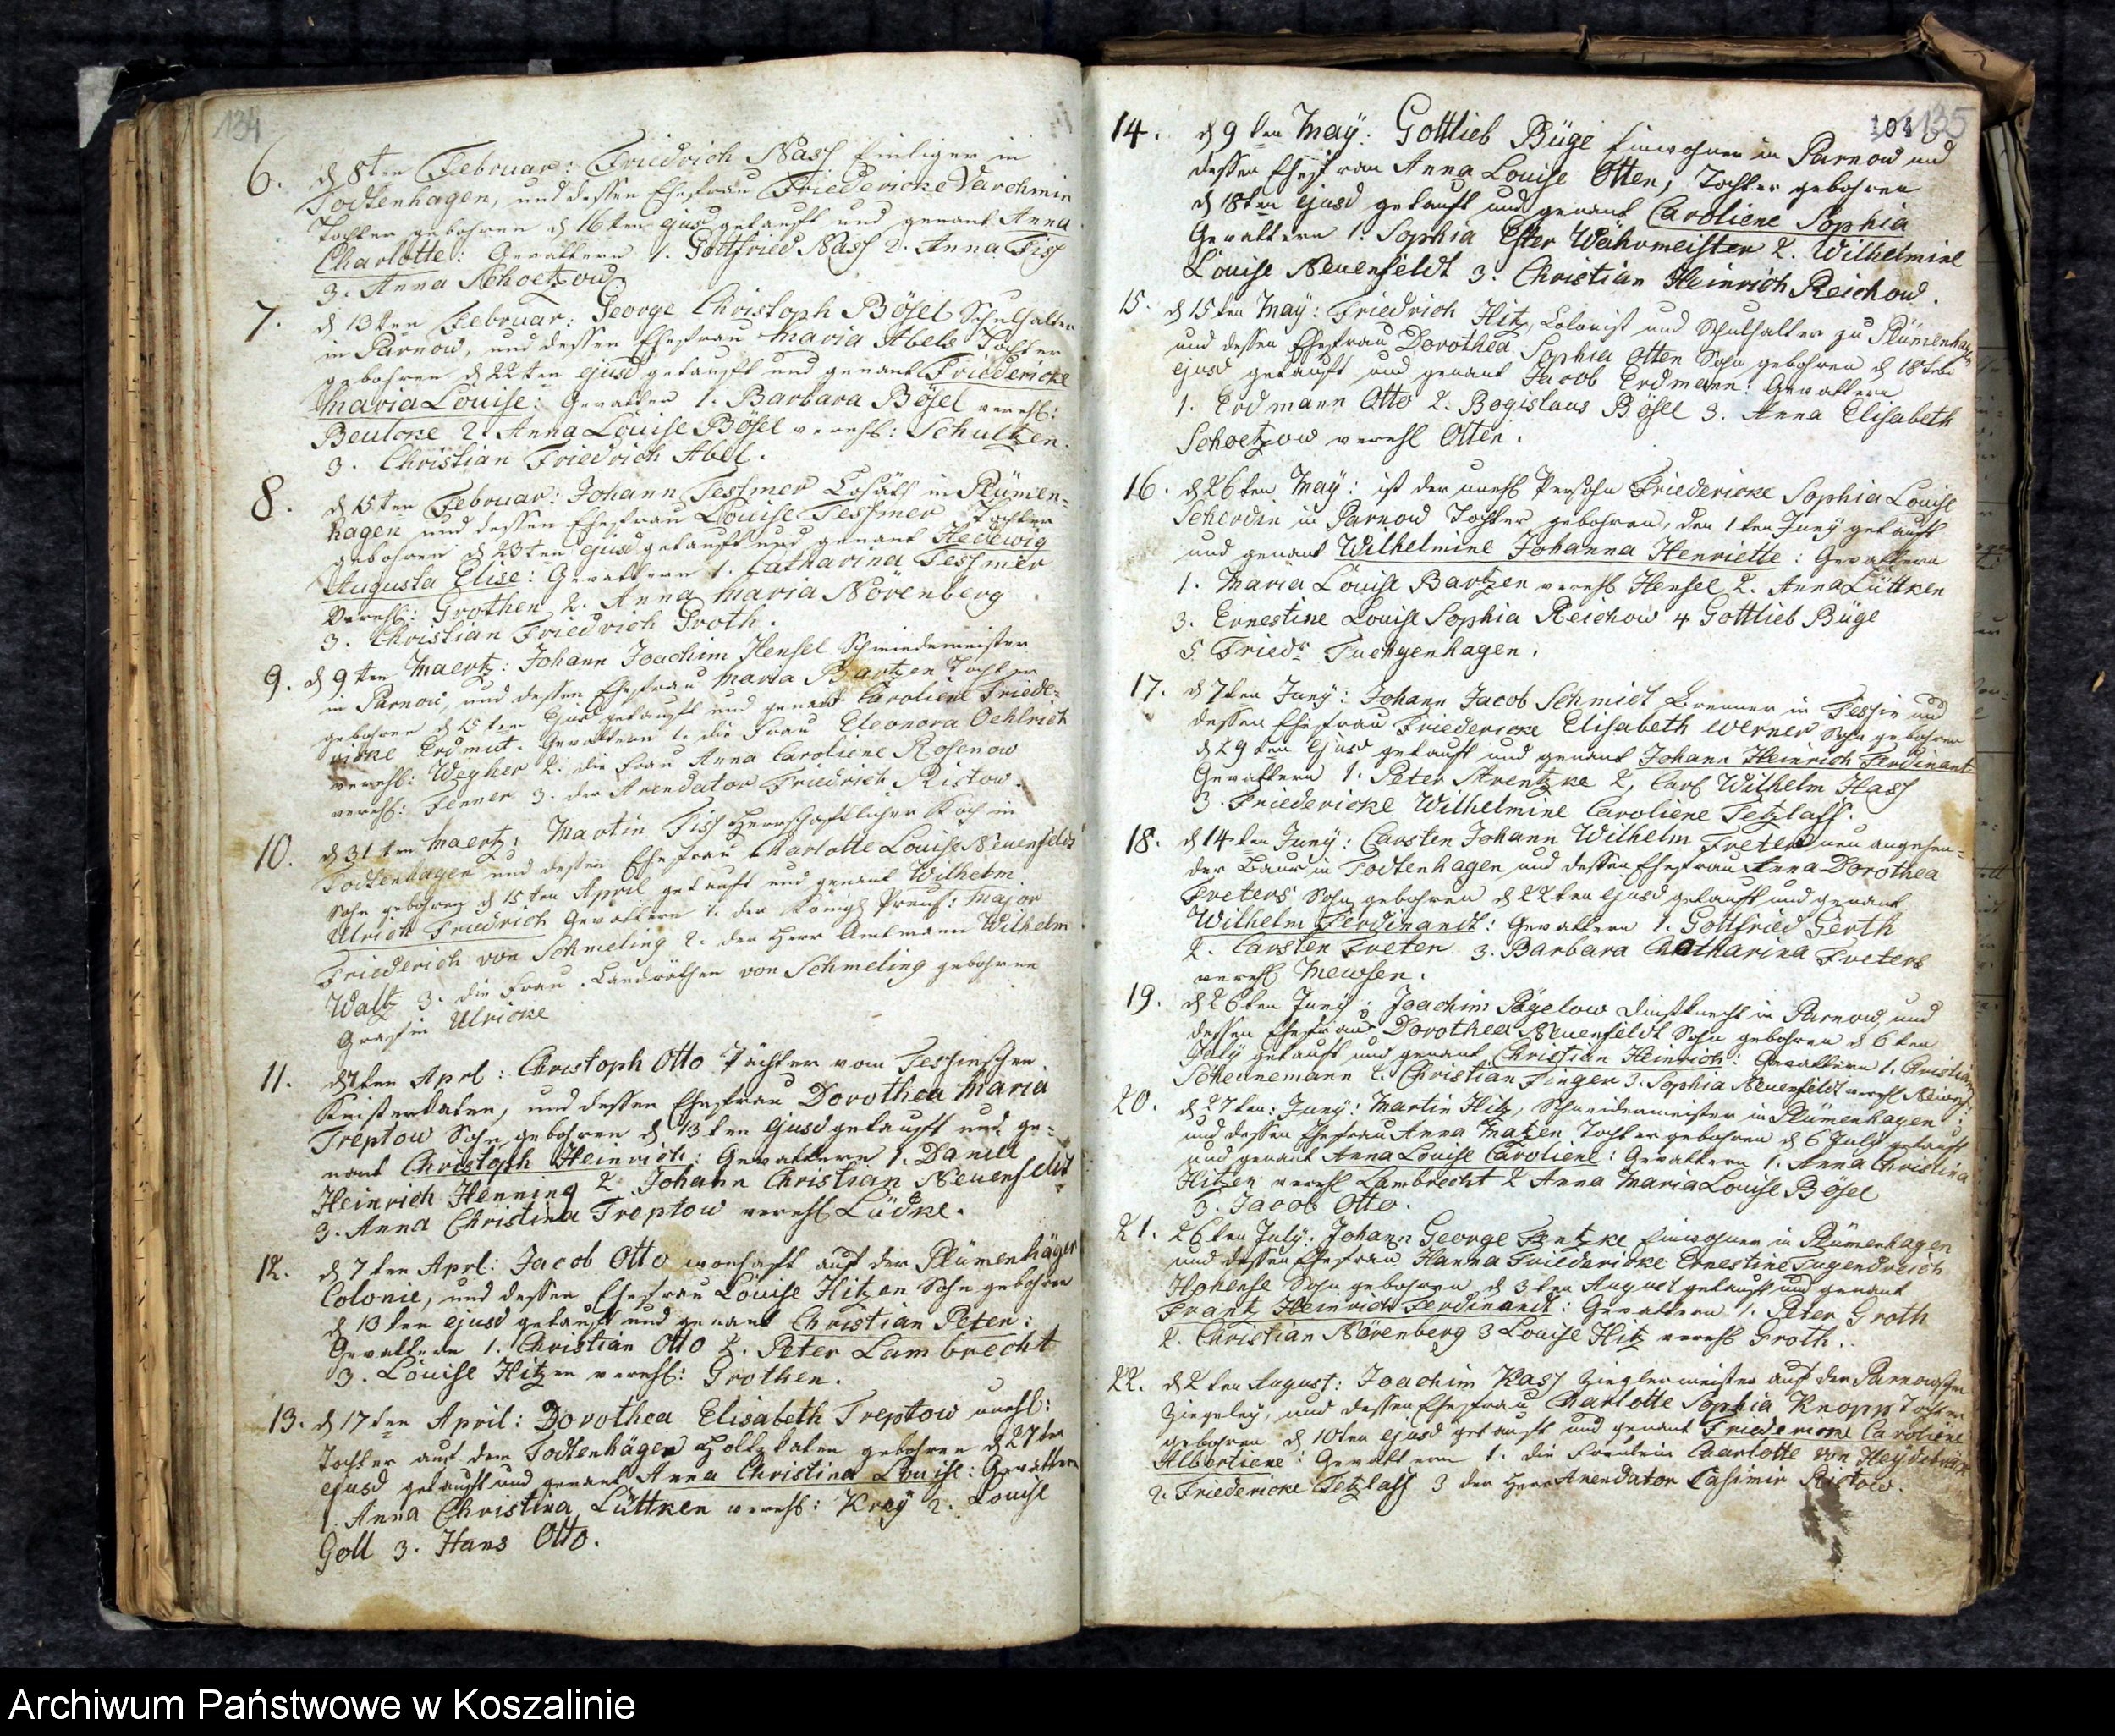 134
6. d 8ten Februar: Friedrich Nass Einlieger in
Todtenhagen, und dessen Ehefrau Friedericke Varchmin
Tochter gebohren d 16ten ejusd getauft und genant Anna
Charlotte: Gevattern 1. Gottfried Nass 2. Anna Fiss
3. Anna Schoetzow
7. d 13ten Februar: George Christoph Bösel Schulhalter
in Parnow, und dessen Ehefrau Maria Abels Tochter
gebohren d 22ten ejusd getauft und genant Friedericke
Maria Louise: Gevatter 1. Barbara Bösel verehl:
Beutcke 2. Anna Louise Bösel verehl: Schultzen.
3. Christian Friedrich Abel.
8. d 15ten Februar: Johann Tessmer Cosäth in Plümen-
hagen und dessen Ehefrau Louise Tessmer Tochter
gebohren d 23ten ejusd getauft und genant Hedewig
Augusta Elise: Gevattern 1. Catharina Tessmer
Verehl: Grothen 2. Anna Maria Nörenberg
3. Christian Friedrich Groth.
9. d 9ten Maertz: Johann Joachim Hensel Schmiedemeister
in Parnow, und dessen Ehefrau Maria Bartzen Tochter
gebohren d 15ten Ejusd getauft und genant Caroliene Friede-
ricke Erdmut. Gevattern 1. die Frau Eleonora Oehlrich
verehl: Wegher 2. die Frau Anna Caroliene Rosenow
verehl: Fenner 3. der Arendator Friedrich Ristow.
10. d 31ten Maertz: Martin Fiss Herrschaftlicher Koch in
Todtenhagen und dessen Ehefrau Charlotte Louise Neuenfeldt
Sohn gebohren d 15ten April getauft und genant Wilhelm
Ulrich Friedrich Gevattern 1. der Königl Preuß: Major
Friederich von Schmeling 2. der Herr Amtmann Wilhelm
Waltz 3. die Frau Landräthin von Schmeling gebohrne
Grafin Ulricke
11. d 7ten Aprl: Christoph Otto Pächter vom Tessinschen
Kaisterkaten, und dessen Ehefrau Dorothea Maria
Treptow Sohn gebohren d 13ten Ejusd getauft und ge-
nant Christoph Heinrich: Gevattern 1. Daniel
Heinrich Henning 2 Johann Christian Neuenfeldt
3. Anna Christina Treptow verehl Lüdke.
12. d 7ten Aprl: Jacob Otto wonhaft auf der Plümenhäger
Colonie, und dessen Ehefrau Louise Hitzen Sohn gebohren
d 13ten ejusd getauft und genant Christian Peter:
Gevattern 1. Christian Otto 2. Peter Lambrecht
3. Louise Hitzen verehl: Grothen.
13. d 17ten April: Dorothea Elisabeth Treptow unehl:
Tochter aus dem Todtenhäger Holtzkaten gebohren d 27ten
ejusd getauft und genant Anna Christina Louise: Gevattern
1. Anna Christina Lüttken verehl: Krey 2. Louise
Goll 3. Hans Otto.
104 135
14. d 9ten May: Gottlieb Büge Einwohner in Parnow und
dessen Ehefrau Anna Louise Otten, Tochter gebohren
d 18ten ejusd getauft und genant Caroliene Sophia
Gevattern 1. Sophia Ester Währmeister 2. Wilhelmine
Louise Neuenfeldt 3. Christian Heinrich Reichow.
15. d 15ten May: Friedrich Hitz, Colonist und Schulhalter zu Plümenhagen
und dessen Ehefrau Dorothea Sophia Otten Sohn gebohren d 18ten
ejusd getauft und genant Jacob Erdmann: Gevattern
1. Erdmann Otto 2. Bogislaus Bösel 3. Anna Elisabeth
Schoetzow verehl Otten.
16. d 26ten May: ist der unehl Persohn Friedericke Sophia Louise
Scherdin in Parnow Tochter gebohren, den 1ten Juny getauft
und genant Wilhelmine Johanna Henriette: Gevattern
1. Maria Louise Bartzen verehl Hensel 2. Anna Lüttken
3. Ernestine Louise Sophia Reichow 4 Gottlieb Büge
5. Friedr Fuengenhagen.
17. d 7ten Juny: Johann Jacob Schmidt Brenner in Tessin und
dessen Ehefrau Friedericke Elisabeth Werner Sohn gebohren
d 29ten Ejusd getauft und genant Johann Heinrich Ferdinant
Gevattern 1. Peter Strentzke 2. Carl Wilhelm Hass
3. Friedericke Wilhelmine Caroliene Tetzlaff.
18. d 14ten Juny: Carsten Johann Wilhelm Freter neu angehen-
der Baur in Todtenhagen und dessen Ehefrau Anna Dorothea
Freters Sohn gebohren d 22ten ejusd getauft und genant
Wilhelm Ferdinandt: Gevattern 1. Gottfried Gerth
2. Carsten Freter 3. Barbara Chatharina Freters
verehl Mewsen.
19. d 26ten Juny: Joachim Pägelow Dienstknecht in Parnow und
dessen Ehefrau Dorothea Neuenfeldt Sohn gebohren d 6ten
July getauft und genant Christian Heinrich: Gevattern 1. Christian
Schennemann 2. Christian Finger 3. Sophia Neuenfeldt verehl
20. d 27ten: Juny: Martin Hitz, Schneidermeister in Plümenhagen
und dessen Ehefrau Anna Matzen Tochter gebohren d 6 July getauft
und genant Anna Louise Caroliene: Gevattern 1. Anna Christina
Hitzen verehl Lambrecht 2 Anna Maria Louise Bösel
3. Jacob Otto.
21. 26ten July: Johann George Fentzke Einwohner in Plümenhagen
und dessen Ehefrau Hanna Friedericke Ernestine Tugendreich
Sohn gebohren d 3ten August getauft und genant
Frantz Heinrich Ferdinandt: Gevattern 1. Peter Groth
2. Christian Nörenberg 3 Louise Hitz verehl Groth.
22. d 2ten August: Joachim Kass Zieglermeister auf der Parnowschen
Ziegeley, und dessen Ehefrau Charlotte Sophia Knopp Tochter
gebohren d 10ten ejusd getauft und genant Friedericke Caroliene
Albertiene: Gevattern 1. die Freulein Charlotte von Heydebräck
2. Friedericke Tetzlaff 3 der Herr Arendator Casimir Ristow.
Archiwum Państwowe w Koszalinie